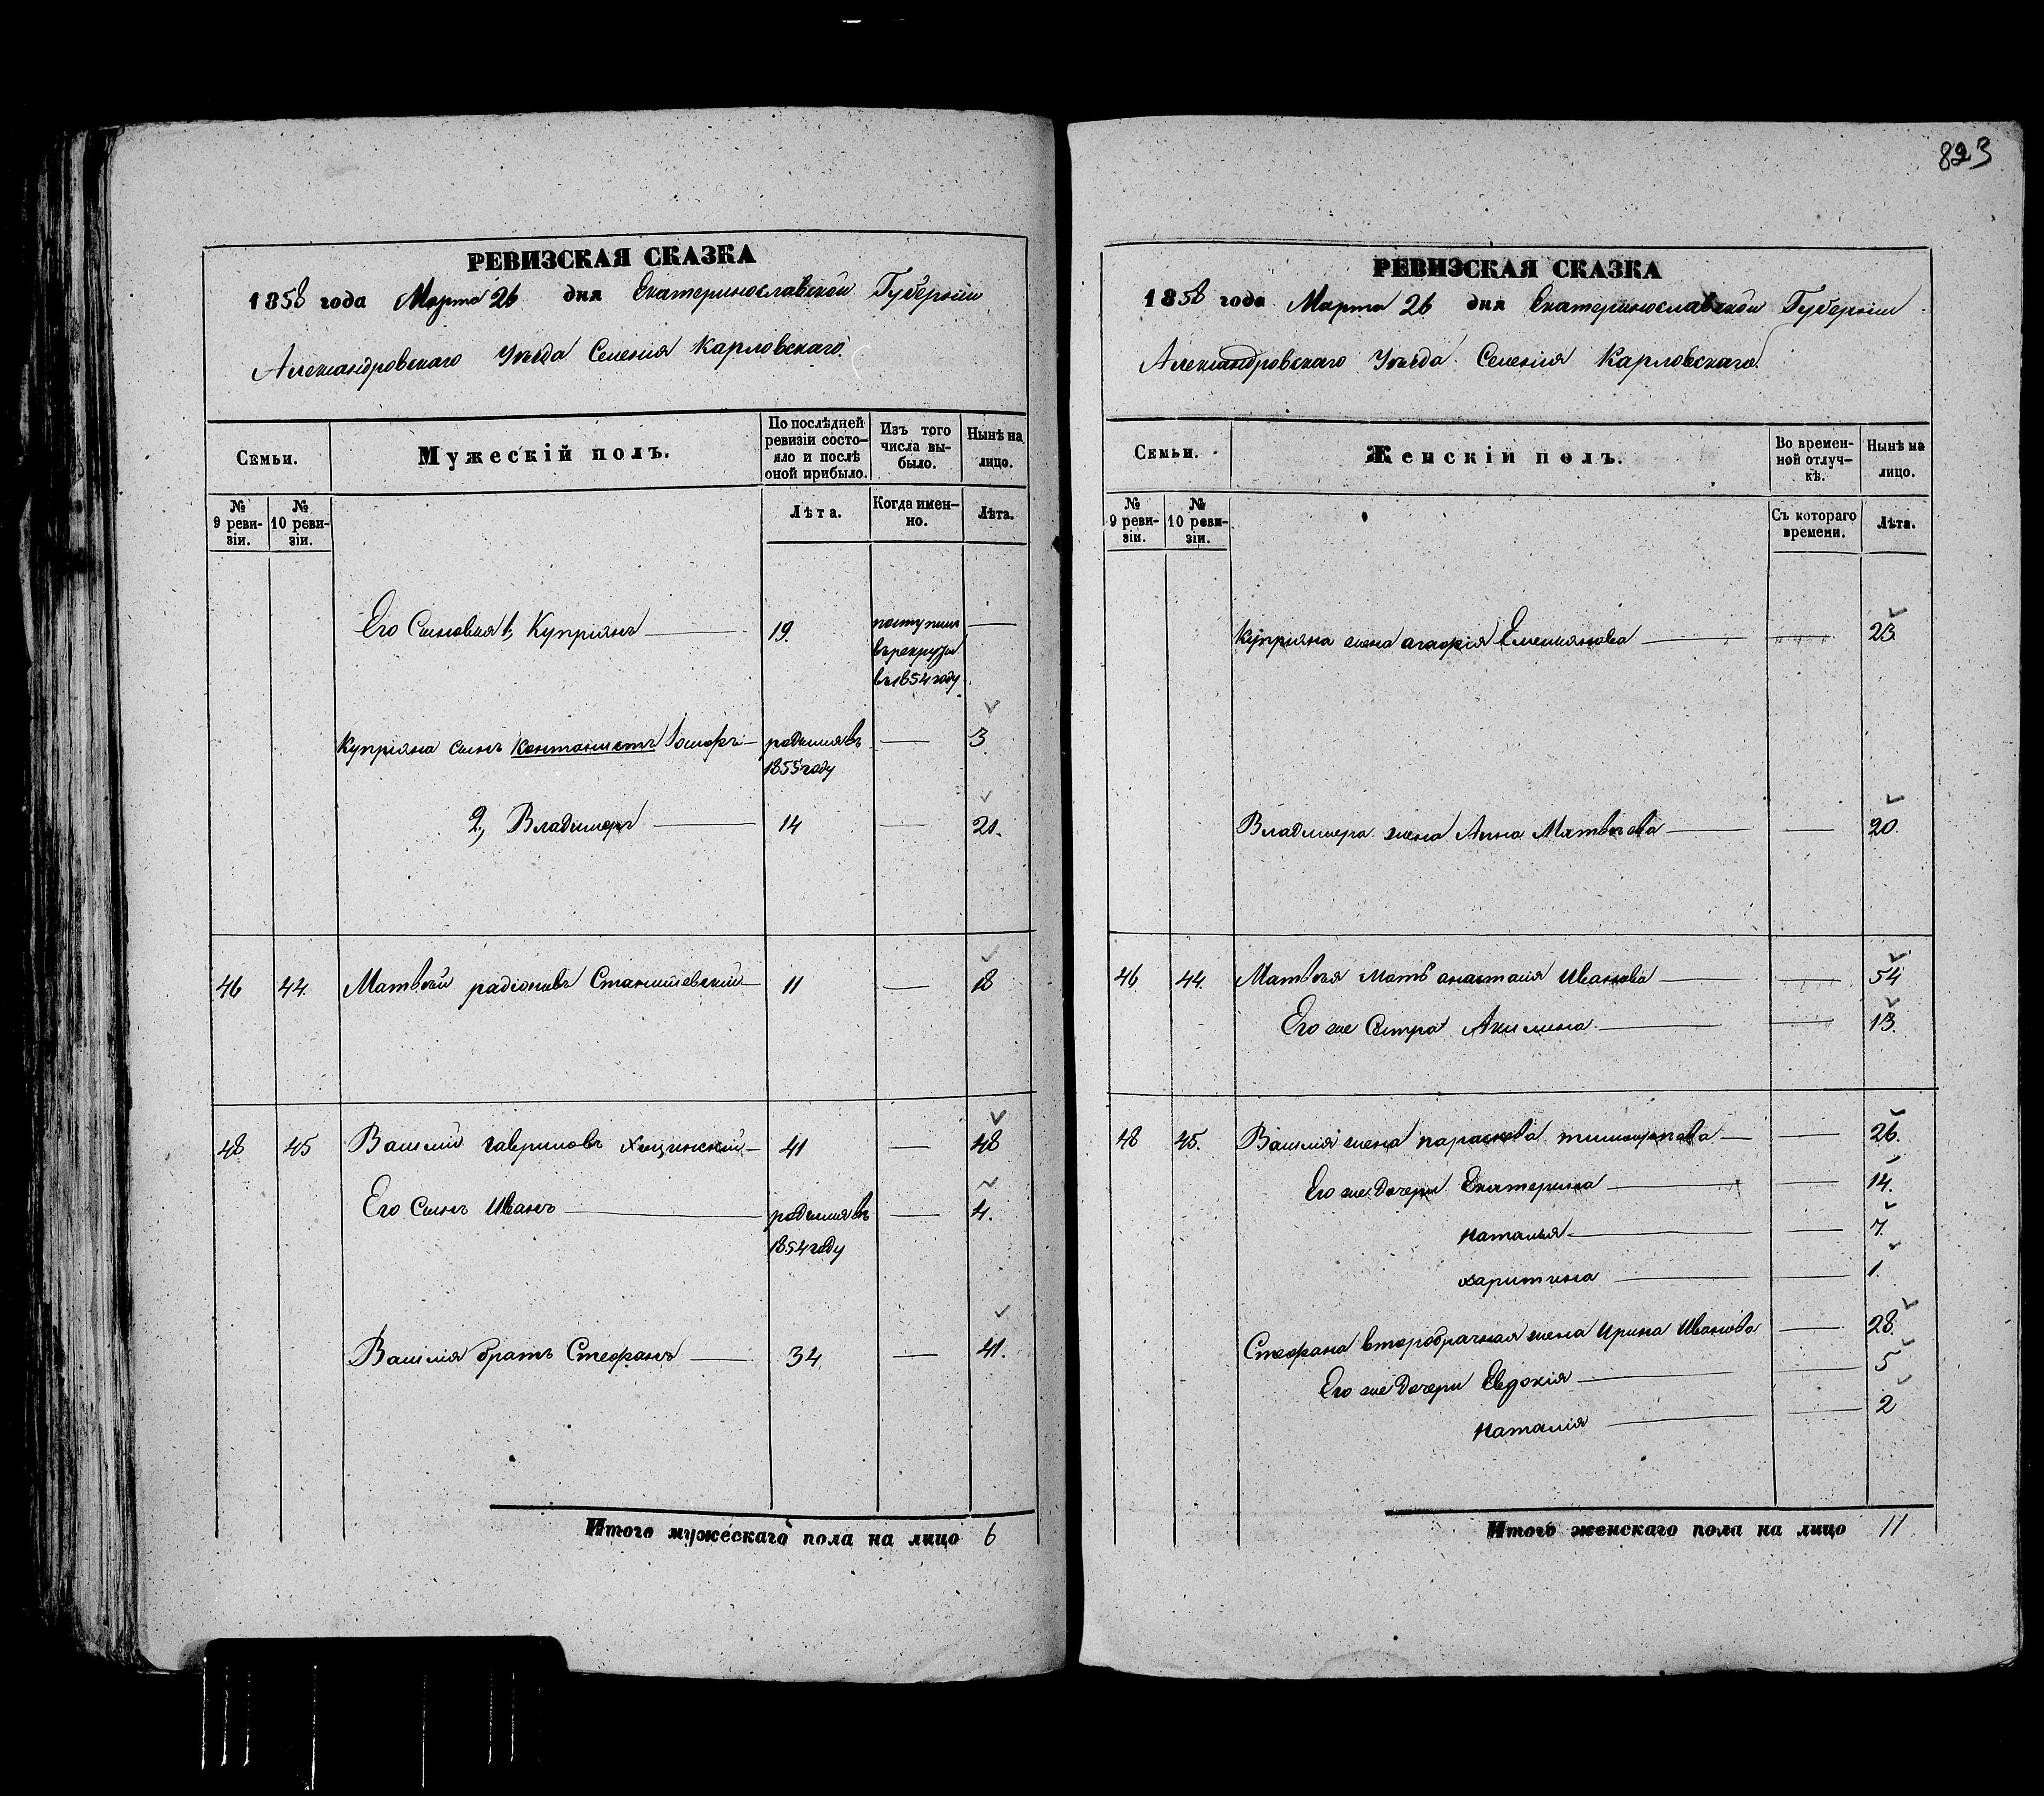 823
РЕВИЗСКАЯ СКАЗКА
1858 года Марта 26 дня Екатеринославской Губернии
Александровскаго Уѣзда Селенія Карловскаго.
Семьи.
Мужескій полъ.
По послѣдней ревизіи состо-яло и послѣ оной прибыло.
Изъ того числа вы-было.
Нынѣ на лицо.
№ 9 реви-зіи.
№ 10 реви-зіи.
Лѣта.
Когда имен-но.
Лѣта.
Его Сыновья 1, Купріянъ 19. поступил
въ рекруты
въ 1854 году
Купріяна сынъ Кантонистъ родился въ 3
1855 году
2, Владимеръ 14 21.
46 44. Матвѣй радіоновъ Станишевскій 11 18
48 45 Василій гавриловъ 41 48
Его Сынъ Иванъ родился въ 4.
1854 году
Василія братъ Стефанъ 34 41.
Итого мужескаго пола на лицо 6
РЕВИЗСКАЯ СКАЗКА
1858 года Марта 26 дня Екатеринославской Губернии
Александровскаго Уѣзда Селенія Карловскаго.
Семьи.
Женскій полъ.
Во времен-ной отлуч-кѣ.
Нынѣ на лицо.
№ 9 реви-зіи.
№ 10 реви-зіи.
Съ котораго времени.
Лѣта.
Купріяна жена агафія Емельянова 23.
Владимера жена Анна Матвѣева 20.
46. 44. Матвѣя Мать анастасія Иванова 54
Его же Сестра Акилина 13.
48 45. Василія жена параскева 26.
Его же Дочери Екатерина 14.
наталья 7.
харитина 1.
Стефана второбрачная жена Ирина Иванова 28.
Его же Дочери Евдокія 5
наталія 2
Итого женскаго пола на лицо 11